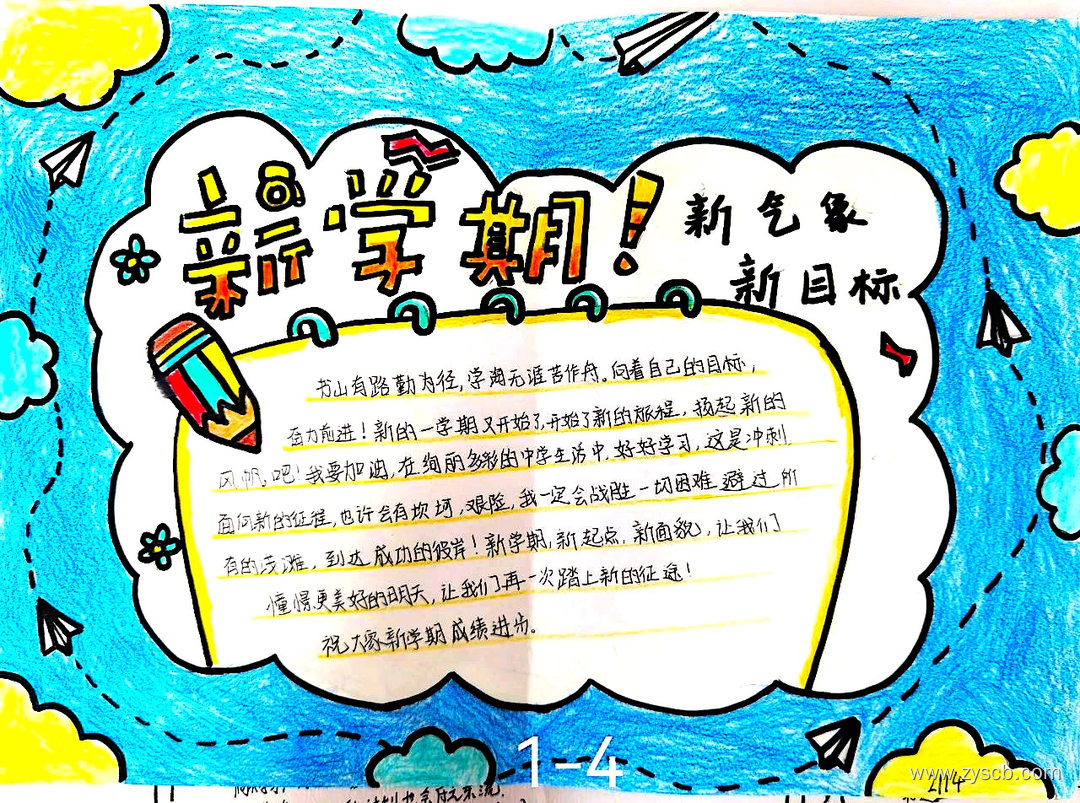 新学期!
新气象
新目标
书山有路勤为径,学海无涯苦作舟。向着自己的目标,
奋力前进!新的一学期又开始了,开始了新的旅程,扬起新的
风帆吧!我要加油,在绚丽多彩的中学生活中,好好学习,这是冲刺
面向新的征程,也许会有坎坷,艰险,我一定会战胜一切困难,避过所
有的浅滩,到达成功的彼岸!新学期,新起点,新面貌,让我们
憧憬更美好的明天,让我们再一次踏上新的征途!
祝大家新学期成绩进步。
1-4
2114
www.zyscb.com